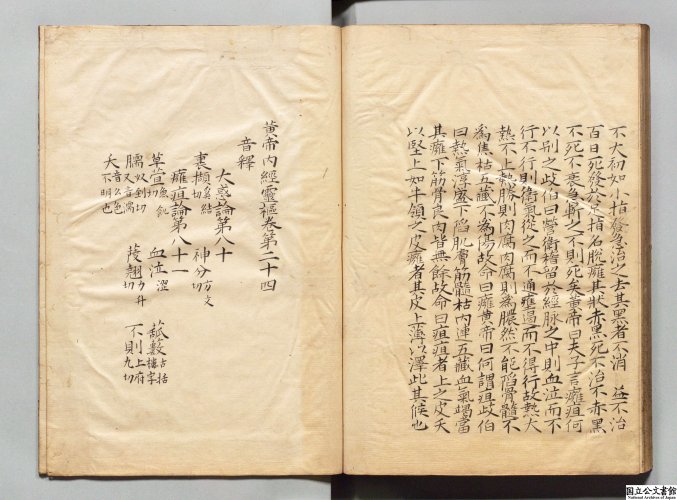 不大初如小指發急治之去其黑者不消輒益不治
百日死發於足指名脫癰其狀赤黑死不治不赤黑
不死不衰急斬之不則死矣黃帝曰夫子言癰疽何
以別之歧伯曰營衛稽留於經脉之中則血泣而不
行不行則衛氣從之而不通壅遏而不得行故熱大
熱不止熱勝則肉腐肉腐則為膿然不能陷骨髓不
為焦枯五藏不為傷故命曰癰黃帝曰何謂疽歧伯
曰熱氣淳盛下陷肌膚筋髓枯內連五藏血氣竭當
其癰下筋骨良肉皆無餘故命曰疽疽者上之皮夭
以堅上如牛領之皮癰者其皮上薄以澤此其候也
黃帝內經靈樞卷第二十四
音釋
大惑論第八十
裹擷 切 神分 方文切
癰疽論第八十一
草萓 切 血泣 澀 蓏 數
臑 奴到切 又音需 䕬翹 切 不則 上府九切
夭 音么色不明也
国立公文書館
National Archives of Japan